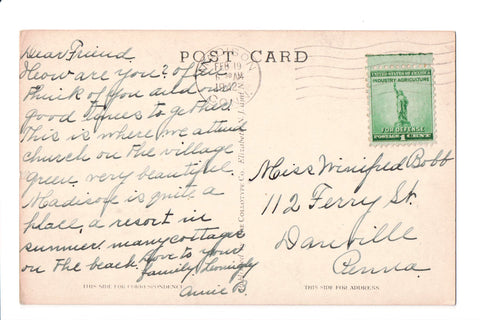 POST CARD
Dear Friend
How are you? often
think of you and our
good times together
This is where we attend
church on the village
green. very beautiful.
Madison is quite a
place, a resort in
summer. many cottages
on the beach. Love to your
family. Lovingly
Annie B.
FEB 19
AM
1942
UNITED STATES OF AMERICA
INDUSTRY AGRICULTURE
FOR DEFENSE
POSTAGE 1 CENT
Miss Winifred Bobb
112 Ferry St.
Danville
Penna
THIS SIDE FOR CORRESPONDENCE
THIS SIDE FOR ADDRESS